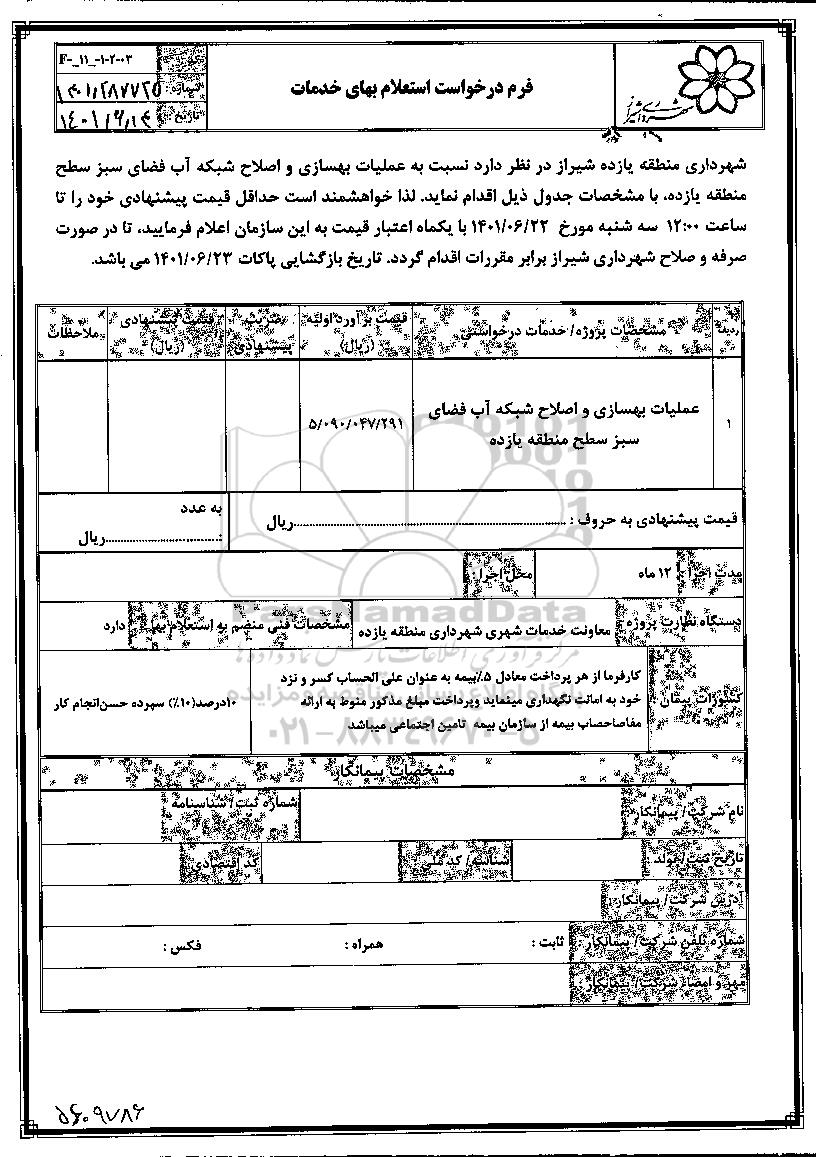 F-_11_-1-2-03
شماره: ۱۴۰۱/۲۸۷۷۲۵
تاریخ: ۱۴۰۱/۶/۱۴
فرم درخواست استعلام بهای خدمات
شهرداری شیراز
شهرداری منطقه یازده شیراز در نظر دارد نسبت به عملیات بهسازی و اصلاح شبکه آب فضای سبز سطح
منطقه یازده، با مشخصات جدول ذیل اقدام نماید. لذا خواهشمند است حداقل قیمت پیشنهادی خود را تا
ساعت ۱۲:۰۰ سه شنبه مورخ ۱۴۰۱/۰۶/۲۲ با یکماه اعتبار قیمت به این سازمان اعلام فرمایید، تا در صورت
صرفه و صلاح شهرداری شیراز برابر مقررات اقدام گردد. تاریخ بازگشایی پاکات ۱۴۰۱/۰۶/۲۳ می باشد.
ردیف مشخصات پروژه/ خدمات درخواستی قیمت برآورد اولیه (ریال) ضریب پیشنهادی قیمت پیشنهادی (ریال) ملاحظات
۱ عملیات بهسازی و اصلاح شبکه آب فضای ۵/۰۹۰/۰۴۷/۲۹۱
سبز سطح منطقه یازده
قیمت پیشنهادی به حروف : ......................................................................ریال به عدد
:................................ریال
مدت اجرا : ۱۲ ماه محل اجرا :
دستگاه نظارت پروژه : معاونت خدمات شهری شهرداری منطقه یازده مشخصات فنی منضم به استعلام بهاء : دارد
کسورات پیمان : کارفرما از هر پرداخت معادل ۵٪بیمه به عنوان علی الحساب کسر و نزد
خود به امانت نگهداری مینماید وپرداخت مبلغ مذکور منوط به ارائه ۱۰درصد(۱۰٪) سپرده حسن‌انجام کار
مفاصاحساب بیمه از سازمان بیمه تامین اجتماعی میباشد
مشخصات پیمانکار
نام شرکت/ پیمانکار : شماره ثبت/ شناسنامه
تاریخ ثبت/ تولد : شناسه/ کد ملی : کد اقتصادی :
آدرس شرکت/ پیمانکار :
شماره تلفن شرکت/ پیمانکار : ثابت : همراه : فکس :
مهر و امضاء شرکت/ پیمانکار :
ParsNamadData
مرکز فرآوری اطلاعات پارس نماد داده ها